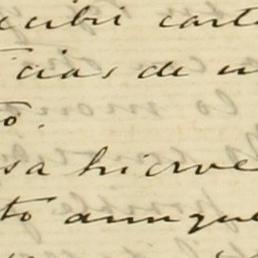 ecibi cart
icias de u
o.
sa hirve
to aunque